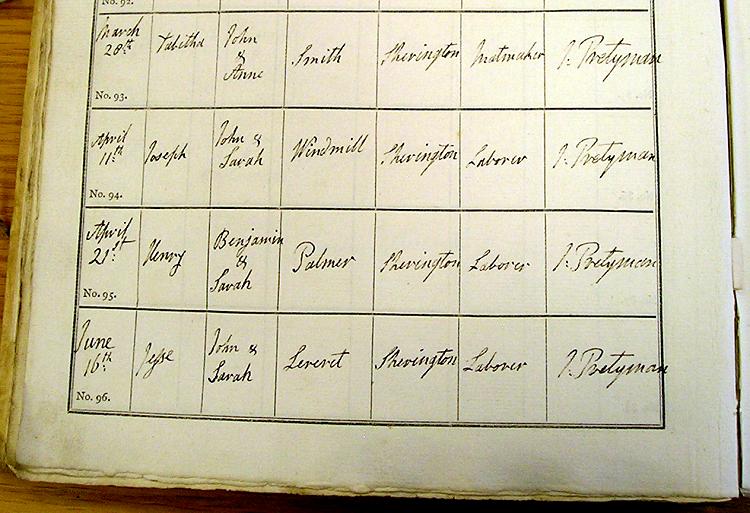 No. 92.
March 28th. Tabitha John & Anne Smith Sherington Matmaker J. Pretyman
No. 93.
April 11th. Joseph John & Sarah Windmill Sherington Laborer J. Pretyman
No. 94.
April 21st. Henry Benjamin & Sarah Palmer Sherington Laborer J. Pretyman
No. 95.
June 16th. Jesse John & Sarah Leveret Sherington Laborer J. Pretyman
No. 96.